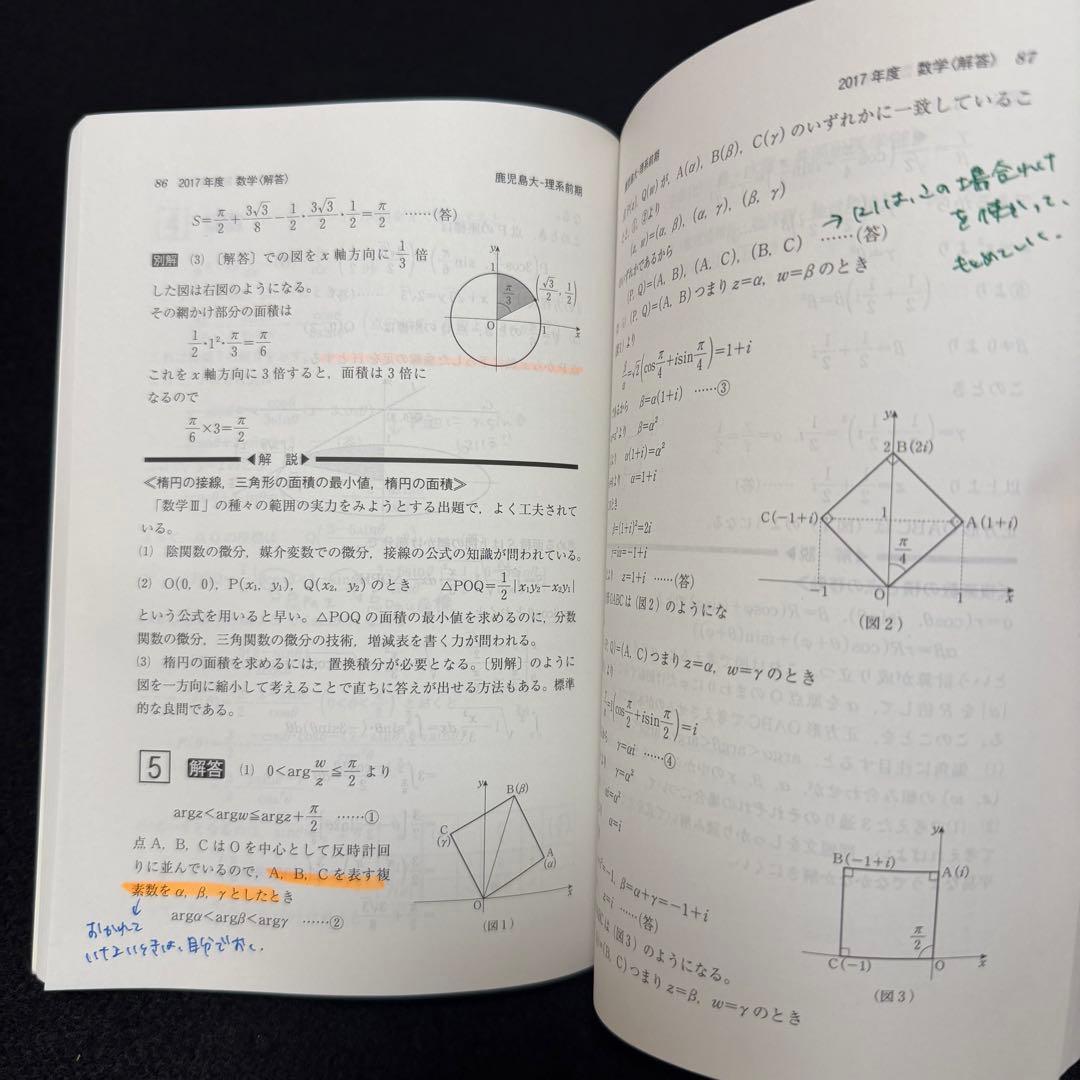 86 2017年度 数学〈解答〉 鹿児島大-理系前期
S=π/2+3√3/8−1/2・3√3/2・1/2=π/2 ……(答)
別解 (3) 〔解答〕での図をx軸方向に1/3倍
した図は右図のようになる。
その網かけ部分の面積は
1/2・1²・π/3=π/6
これをx軸方向に3倍すると,面積は3倍に
なるので
π/6×3=π/2
y
1
π/3
(√3/2, 1/2)
O
1
x
◀解 説▶
≪楕円の接線,三角形の面積の最小値,楕円の面積≫
「数学Ⅲ」の種々の範囲の実力をみようとする出題で,よく工夫されて
いる。
(1) 陰関数の微分,媒介変数での微分,接線の公式の知識が問われている。
(2) O(0, 0), P(x₁, y₁), Q(x₂, y₂)のとき △POQ=1/2|x₁y₂−x₂y₁|
という公式を用いると早い。△POQの面積の最小値を求めるのに,分数
関数の微分,三角関数の微分の技術,増減表を書く力が問われる。
(3) 楕円の面積を求めるには,置換積分が必要となる。〔別解〕のように
図を一方向に縮小して考えることで直ちに答えが出せる方法もある。標準
的な良問である。
5 解答 (1) 0<arg w/z≦π/2 より
argz<argw≦argz+π/2 ……①
点A,B,CはOを中心として反時計回
りに並んでいるので,A,B,Cを表す複
素数をα,β,γとしたとき
argα<argβ<argγ ……②
おかれて
いないときは、自分でおく.
y
B(β)
C
(γ)
A
(α)
O
x
(図1)
2017年度 数学〈解答〉 87
鹿児島大-理系前期
Q(w)が,A(α),B(β),C(γ)のいずれかに一致しているこ
②より
(z, w)=(α, β), (α, γ), (β, γ)
のいずれかであるから
(P, Q)=(A, B), (A, C), (B, C) ……(答)
(P, Q)=(A, B)つまりz=α, w=βのとき
の場合わけ
を使って、
より
=√2(cosπ/4+isinπ/4)=1+i
から β=α(1+i) ……③
より β=α²
α(1+i)=α²
α=1+i
β=(1+i)²=2i
γ=iα=−1+i
z=1+i ……(答)
OABCは(図2)のようにな
y
2
B(2i)
C(−1+i)
1
A(1+i)
π/4
−1
O
1
x
(図2)
P, Q)=(A, C)つまりz=α, w=γのとき
より
(cosπ/2+isinπ/2)=i
から γ=αi ……④
γ=α²
αi=α²
α=i
=−1, β=α+γ=−1+i
z=i ……(答)
は(図3)のようになる。
=(B, C)つまりz=β, w=γのとき
y
B(−1+i)
A(i)
π/2
C(−1)
O
x
(図3)